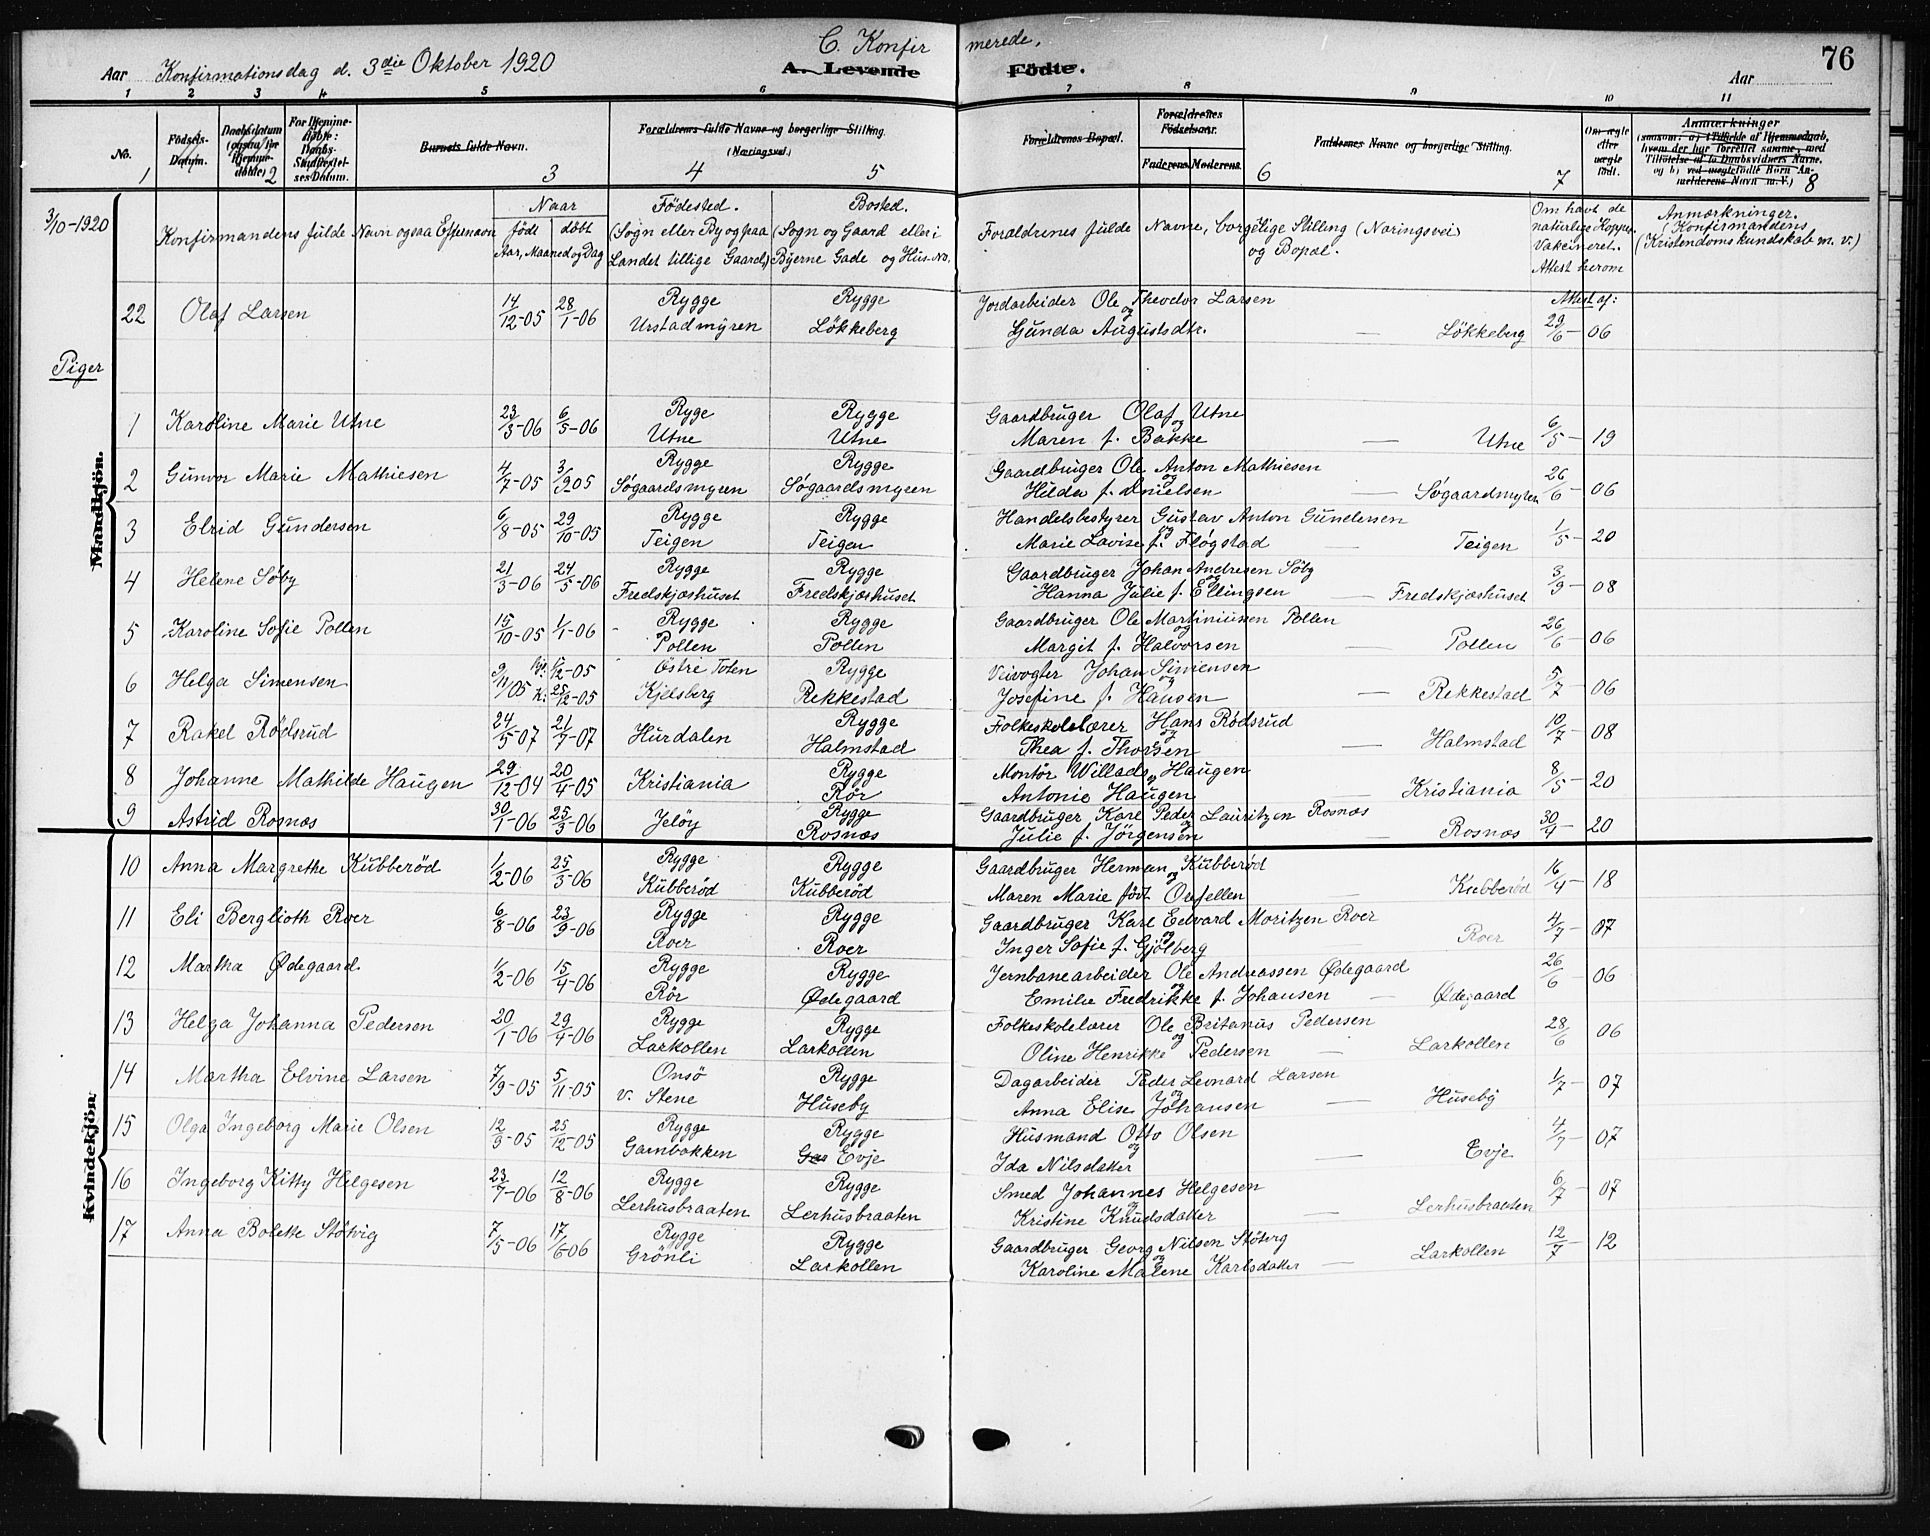 76
C. Konfirmerede,
Aar Konfirmationsdag d. 3die Oktober 1920
A. Levende Födte.
Aar
1 2 3 4 5 6 7 8 9 10 11
No. 1
Födsels-Datum.
Daabsdatum (ogsaa for Hjemmedøbte) 2
For Hjemmedöbte: Daabs-Stadfestelses Datum.
Barnets fulde Navn. 3
Forældrenes fulde Navne og borgerlige Stilling. (Næringsvei.) 4 5
Forældrenes Bopæl.
Forældrenes Födselsaar. Faderens Moderens
Faddernes Navne og borgerlige Stilling. 6 7
Om ægte eller uægte födt.
Anmærkninger (saasom: a) i Tilfælde af Hjemmedaab, hvem der har forrettet samme, med Tilføielse af to Daabsvidners Navne, og b) ved uægtefødte Børn Anmelderens Navn m. V.) 8
3/10-1920
Konfirmandens fulde Navn ogsaa Efternavn
Naar
født döbt
Aar, Maaned og Dag
Födested.
(Sogn eller By og paa Landet tillige Gaard,)
Bosted.
(Sogn og Gaard eller i Byerne Gade og Hus-No.
Forældrenes fulde Navne, borgelige Stilling (Næringsvei) og Bopæl.
Om havt de naturlige Kopper Vakcineret. Attest herom
Anmærkninger. (Konfirmandens Kristendomskundskab m. v.)
Attest af:
22 Olaf Larsen 14/12-05 28/1-06 Rygge Urstadmyren Rygge Lökkeberg Jordarbeider Ole Theodor Larsen og Gunda Augustsdtr. — Lökkeberg 29/6-06
Piger
Mandkjön.
1 Karoline Marie Utne 23/3-06 6/5-06 Rygge Utne Rygge Utne Gaardbruger Olaf Utne og Maren f. Bakke — Utne 6/5-19
2 Gunvor Marie Mathiesen 4/7-05 3/9-05 Rygge Søgaardsmyren Rygge Søgaardsmyren Gaardbruger Ole Anton Mathiesen og Hilda f. Nielsen — Søgaardmyren 26/6-06
3 Elrid Gundersen 6/8-05 29/10-05 Rygge Teigen Rygge Teigen Handelsbestyrer Gustav Anton Gundersen og Marie Lovise f. Fløgstad — Teigen 1/5-20
4 Helene Söby 21/3-06 24/5-06 Rygge Fredskjærhuset Rygge Fredskjærhuset Gaardbruger Johan Andresen Söby og Hanna Julie f. Ellingsen — Fredskjærhuset 3/9-08
5 Karoline Sofie Pollen 15/10-05 1/1-06 Rygge Pollen Rygge Pollen Gaardbruger Ole Martiniusen Pollen og Margit f. Halvorsen — Pollen 26/6-06
6 Helga Simensen 9/11 05 Hj. 5/12-05 K. 25/12-05 Östre Toten Kjelsberg Rygge Rekkestad Veivogter Johan Simensen og Josefine f. Hansen — Rekkestad 5/7-06
7 Rakel Rødsrud 24/5-07 21/7-07 Hurdalen Rygge Halmstad Folkeskolelærer Hans Rødsrud og Thea f. Thorsen — Halmstad 10/7-08
8 Johanne Mathilde Haugen 29/12-04 20/4-05 Kristiania Rygge Rör Montör Willads Haugen og Antonie Haugen — Kristiania 8/5-20
9 Astrid Rosnæs 30/1-06 25/3-06 Jelöy Rygge Rosnæs Gaardbruger Karl Peder Lauritzen Rosnæs og Julie f. Jörgensen — Rosnæs 30/4-20
Kvindekjön.
10 Anna Margrethe Kubberød 1/2-06 25/3-06 Rygge Kubberöd Rygge Kubberöd Gaardbruger Herman Kubberød og Maren Marie født Orefellen — Kubberöd 16/4-18
11 Eli Berglioth Roer 6/8-06 23/9-06 Rygge Roer Rygge Roer Gaardbruger Karl Edvard Moritzen Roer og Inger Sofie f. Gjölberg Roer 4/7-07
12 Martha Ødegaard 1/2-06 15/4-06 Rygge Rör Rygge Ødegaard Jernbanearbeider Ole Andreassen Ødegaard og Emilie Fredrikke f. Johansen — Ødegaard 26/6 06
13 Helga Johanna Pedersen 20/1-06 29/4-06 Rygge Larkollen Rygge Larkollen Folkeskolelærer Ole Britanus Pedersen og Oline Henrikke Pedersen — Larkollen 28/6 06
14 Martha Elvine Larsen 7/9-05 5/11-05 Onsö v. Stene Rygge Huseby Dagarbeider Peder Leonard Larsen og Anna Elise Johansen — Huseby 1/7-07
15 Olga Ingeborg Marie Olsen 12/9-05 25/12-05 Rygge Garnbakken Rygge Evje Husmand Otto Olsen og Ida Nilsdatter Evje 4/7-07
16 Ingeborg Kitty Helgesen 23/7-06 12/8-06 Rygge Lerhusbraaten Rygge Lerhusbraaten Smed Johannes Helgesen og Kristine Knudsdatter — Lerhusbraaten 6/7-07
17 Anna Bolette Støtvig 7/5-06 17/6-06 Rygge Grönli Rygge Larkollen Gaardbruger Georg Nilsen Støtvig og Karoline Malene Karlsdatter — Larkollen 12/7-12